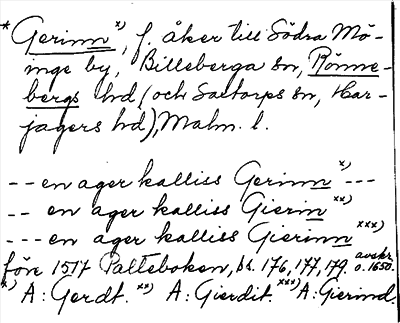 * Gerinn x), f. åker till Södra Mö-
inge by, Billeberga sn, Rönne-
bergs hd (och Saxtorps sn, Har-
jagers hd), Malm. l.
-- en ager kalliss Gerinn x) ---
-- en ager kalliss Gierin xx)
--- en ager kalliss Gierinn xxx)
före 1517 Palteboken, bl. 176, 177, 179. avskr. o. 1650.
x) A: Gerdt. xx) A: Gierdit. xxx) A: Gierind.